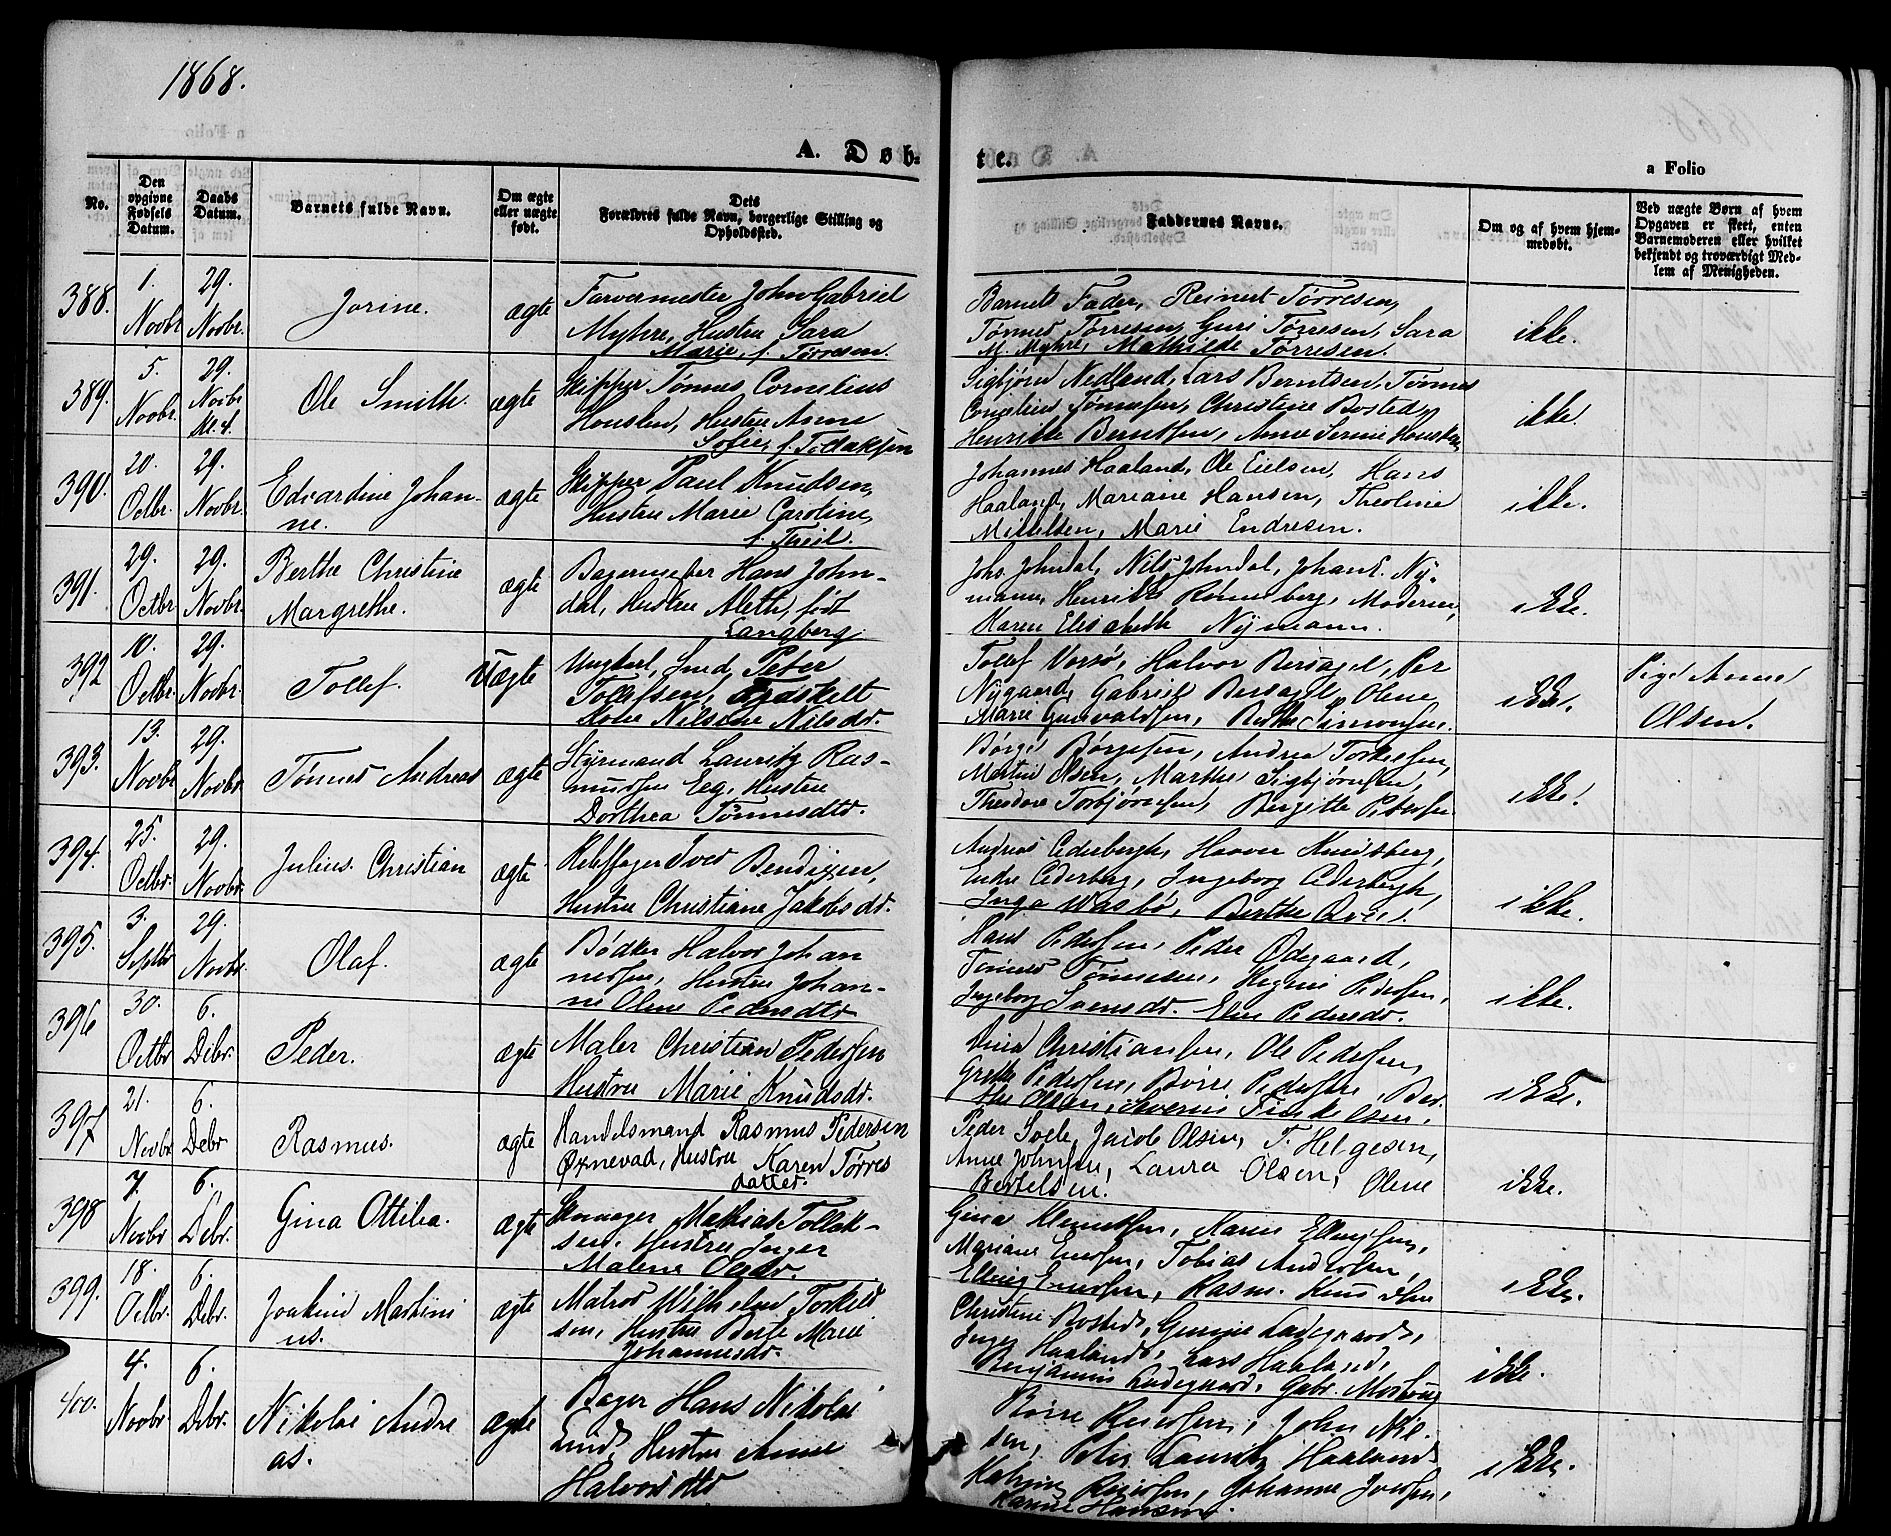 1868.
A. Døb-
te.
a Folio
No.
Den opgivne Fødsels Datum.
Daabs Datum.
Barnets fulde Navn.
Om ægte eller uægte født.
Dets Forældres fulde Navn, borgerlige Stilling og Opholdssted.
Faddernes Navne.
Om og af hvem hjemmedøbt.
Ved uægte Børn af hvem Opgaven er skeet, enten Barnemoderen eller hvilket bekjendt og troværdigt Medlem af Menigheden.
388. 1. Novbr. 29. Novbr. Jorine. ægte
Farvermester John Gabriel
Myhre, Hustru Sara
Marie, f. Tørresen.
Barnets Fader, Reinert Tørresen,
Tønnes Tørresen, Guri Tørresen, Sara
M. Myhre, Mathilde Tørresen.
ikke.
389. 5. Novbr. 29. Novbr. Ole Smith. ægte
Skipper Tønnes Cornelius
Housken, Hustru Anne
Sofie, f.
Sigbjørn Nedland, Lars Berntsen, Tønnes
Cornelius Tønnesen, Christine Bosted,
Henrikke Berntsen, Anne Serine Housken
ikke.
390. 20. Octbr. 29. Novbr. Edvardine Johan-
ne. ægte
Skipper Paul Knudsen,
Hustru Marie Caroline,
f. Thiil.
Johannes Haaland, Ole Eielsen, Hans
Haaland, Mariane Hansen, Theoline
Mikkelsen, Marie Endresen.
ikke.
391. 29. Octbr. 29. Novbr. Berthe Christine
Margrethe. ægte
Bagermester Hans John-
dal, Hustru Aleth, født
Langberg.
Johs. Johndal, Nils Johndal, Johan E. Ny-
mann, Henrikke Rønneberg, Moderen,
Karen Elisabeth Nymann.
ikke.
392 10. Octbr. 29. Novbr. Tollef. Uægte
Ungkarl, Smed Peter
Tollefsen, Fraskilt
Kone Nilsine Nilsdr.
Tollef Vorsø, Halvor Bersagel, Per
Nygaard, Gabriel Bersagel, Olene
Marie Gunvaldsen, Berthe Simonsen.
ikke.
Pige Anne
Olsen.
393. 13. Novbr. 29. Novbr. Tønnes Andreas ægte
Styrmand Lauritz Ras-
mussen Eeg, Hustru
Dorthea Tønnesdtr.
Børge Børgesen, Andrea Torkelsen,
Martin Olsen, Marthe Sigbjørnsen,
Theodore Torbjørnsen, Bergitte Petersen
ikke.
394. 25. Octbr. 29. Novbr. Julius Christian ægte
Rebslager Bendixen,
Hustru Christiane Jakobsdr.
Andreas Cederbergh, Haaver Knudsberg,
Endre Cederberg, Ingeborg Cederbergh,
Inga Wasbø, Berthe
ikke.
395. 3. Septbr. 29. Novbr. Olaf. ægte
Bødker Halvor Johan
nessen, Hustru Johan-
ne Olene Pedersdtr
Hans Pedersen, Peder Ødegaard,
Tønnes Tønnesen, Regine Pedersen,
Ingeborg Svensdr. Elen Pedersdr.
ikke.
396 30. Octbr 6. Debr. Peder. ægte
Maler Christian Pedersen
Hustru Marie Knudsdr.
Christiansen, Ole Pedersen,
Grethe Pedersen, Børre Pedersen, Ber-
the Olsen, Severine Olsen.
ikke.
397 21. Novbr 6. Debr Rasmus. ægte
Handelsmand Rasmus Pedersen
Øxnevad, Hustru Karen Tørres
datter.
Peder Soele, Jacob Olsen, T. Helgesen,
Anne Johnsen, Laura Olsen, Olene
Bertelsen.
ikke.
398 7. Novbr 6. Debr. Gina Ottilia. ægte
Skomager Mathias Tollak-
sen. Hustru Inger
Malene Olsdr.
Gina Klemetsen, Karen Ellingsen,
Mariane Enersen, Tobias Andersen,
Elling Enersen, Rasm. Knudsen
ikke.
399. 18. Octbr. 6. Debr. Joakim Martini
us. ægte
Matros Wilhelm Torkild
sen, Hustru Berte Marie
Johannesdr.
Christine Bosted, Gurine Ladegaard,
Inger Haaland, Lars Haaland,
Benjamin Ladegaard, Gabr.
ikke.
400. 4. Novbr. 6. Debr. Nikolai Andre
as. ægte
Bager Hans Nikolai
Lund, Hustru Anne
Halvorsdtr
Børre Reiersen, John Nil-
sen, Peter Lauritz Haaland
Reiersen, Johanne Iversen,
Karine Hansen.
ikke.